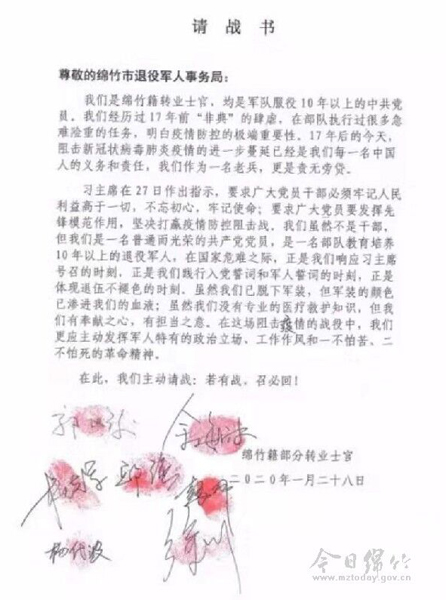 请战书
尊敬的绵竹市退役军人事务局：
我们是绵竹籍转业士官，均是军队服役10年以上的中共党
员。我们经历过17年前“非典”的肆虐，在部队执行过很多急
难险重的任务，明白疫情防控的极端重要性。17年后的今天，
阻击新冠状病毒肺炎疫情的进一步蔓延已经是我们每一名中国
人的义务和责任，我们作为一名老兵，更是责无旁贷。
习主席在27日作出指示，要求广大党员干部必须牢记人民
利益高于一切，不忘初心，牢记使命；要求广大党员要发挥先
锋模范作用，坚决打赢疫情防控阻击战。我们虽然不是干部，
但我们是一名普通而光荣的共产党党员，是一名部队教育培养
10年以上的退役军人，在国家危难之际，正是我们响应习主席
号召的时刻，正是我们践行入党誓词和军人誓词的时刻，正是
体现退伍不褪色的时刻。虽然我们已脱下军装，但军装的颜色
已渗进我们的血液；虽然我们没有专业的医疗救护知识，但我
们有奉献之心，有担当之意。在这场阻击疫情的战役中，我们
更应主动发挥军人特有的政治立场、工作作风和一不怕苦、二
不怕死的革命精神。
在此，我们主动请战：若有战，召必回！
绵竹籍部分转业士官
二〇二〇年一月二十八日
杨代波
今日绵竹
www.mztoday.gov.cn